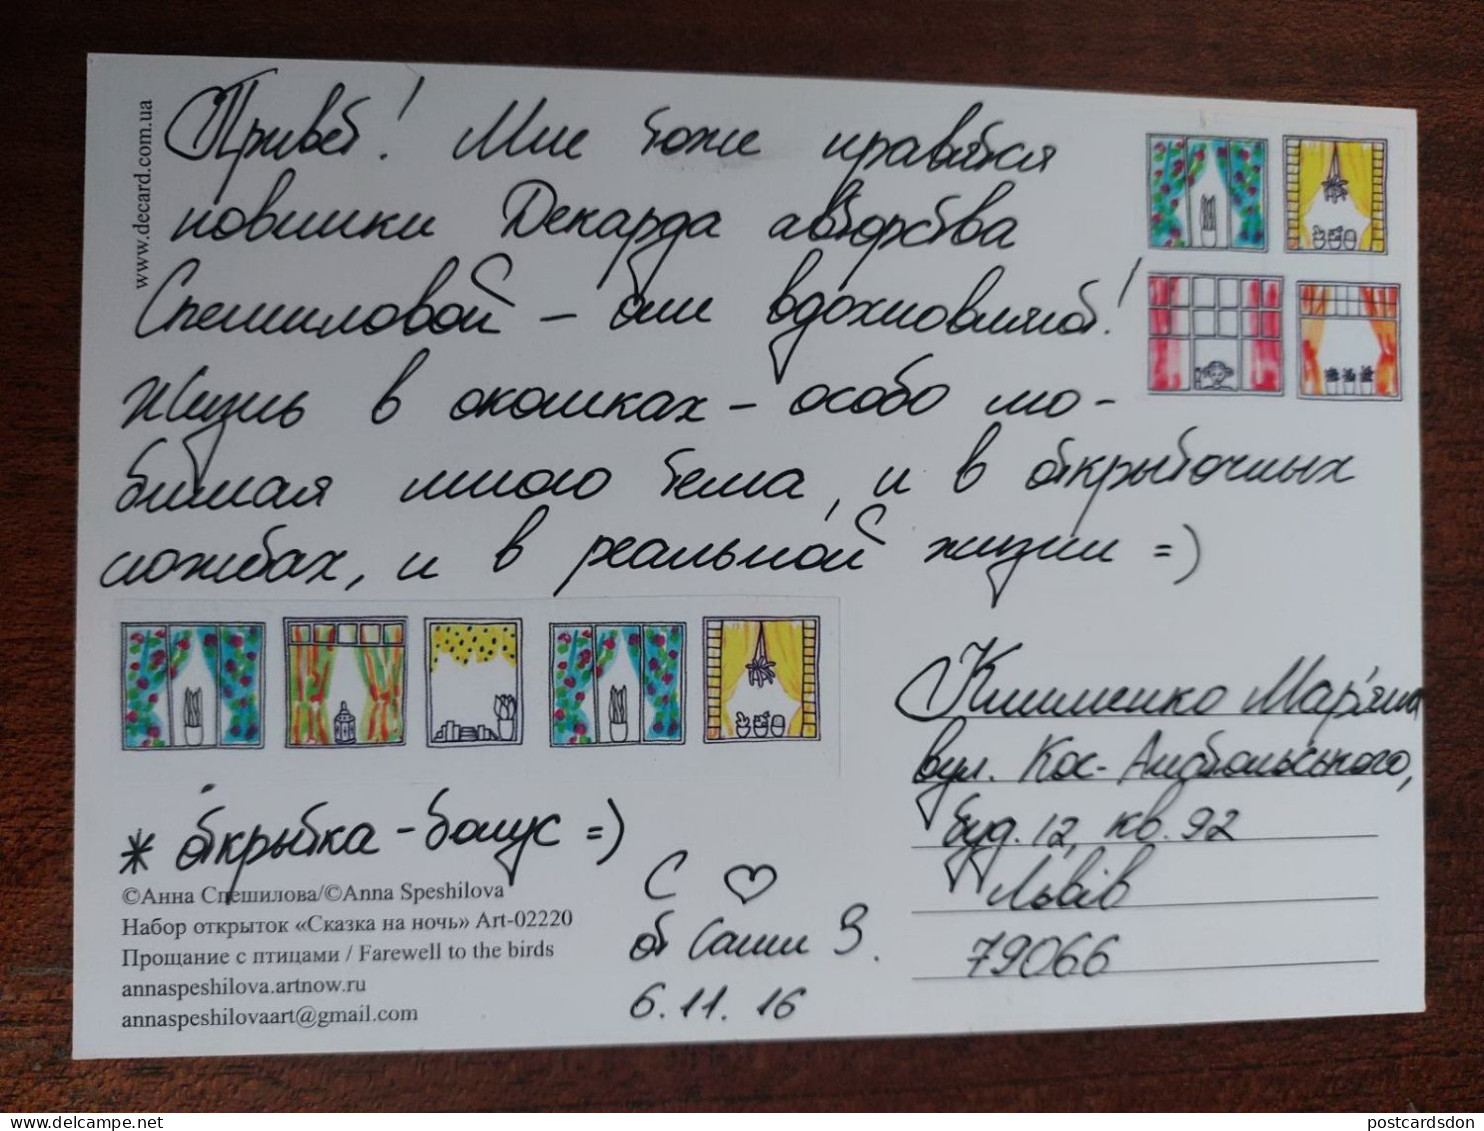 www.decard.com.ua
Привет! Мне тоже нравятся
новинки Декарда авторства
Спешиловой - они вдохновляют!
Жизнь в окошках - особо лю-
бимая мною тема, и в открыточных
сюжетах, и в реальной жизни =)
* открытка-бонус =)
©Анна Спешилова/©Anna Speshilova
Набор открыток «Сказка на ночь» Art-02220
Прощание с птицами / Farewell to the birds
annaspeshilova.artnow.ru
annaspeshilovaart@gmail.com
С ♡
от Саши З.
6.11.16
Клименко Мар'яна
вул. Кос-Анатольського,
буд. 12, кв. 92
Львів
79066
delcampe.net
postcardsdon